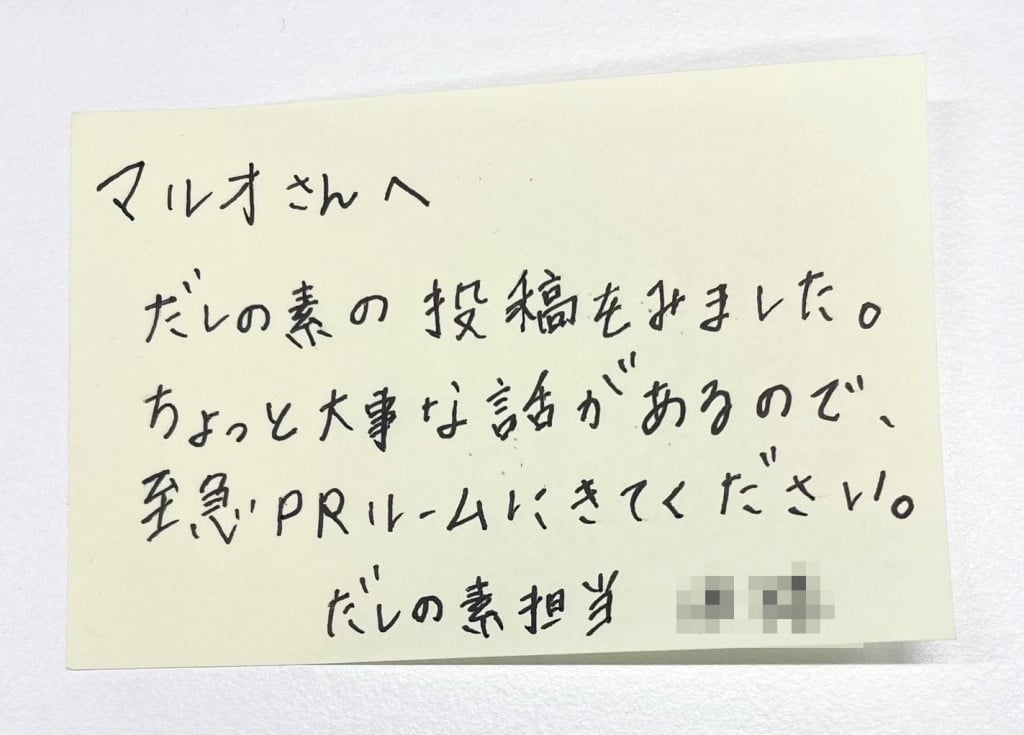 マルオさんへ
だしの素の投稿をみました。
ちょっと大事な話があるので、
至急PRルームにきてください。
だしの素担当